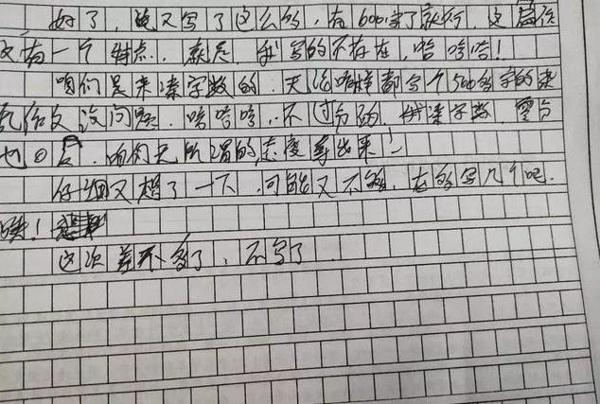 好了，也又写了这么多，有600字了就行，这篇作
文有一个特点，就是，我写的不存在，哈哈哈！
咱们是来凑字数的，无论咱样都写个500多字的来
作文没问题，哈哈哈，不过分的，我凑字数，零分
也，咱们无所谓的态度拿出来！
仔细又想了一下，可能又不够，在多写几个吧，
唉！
这次差不多了，不写了